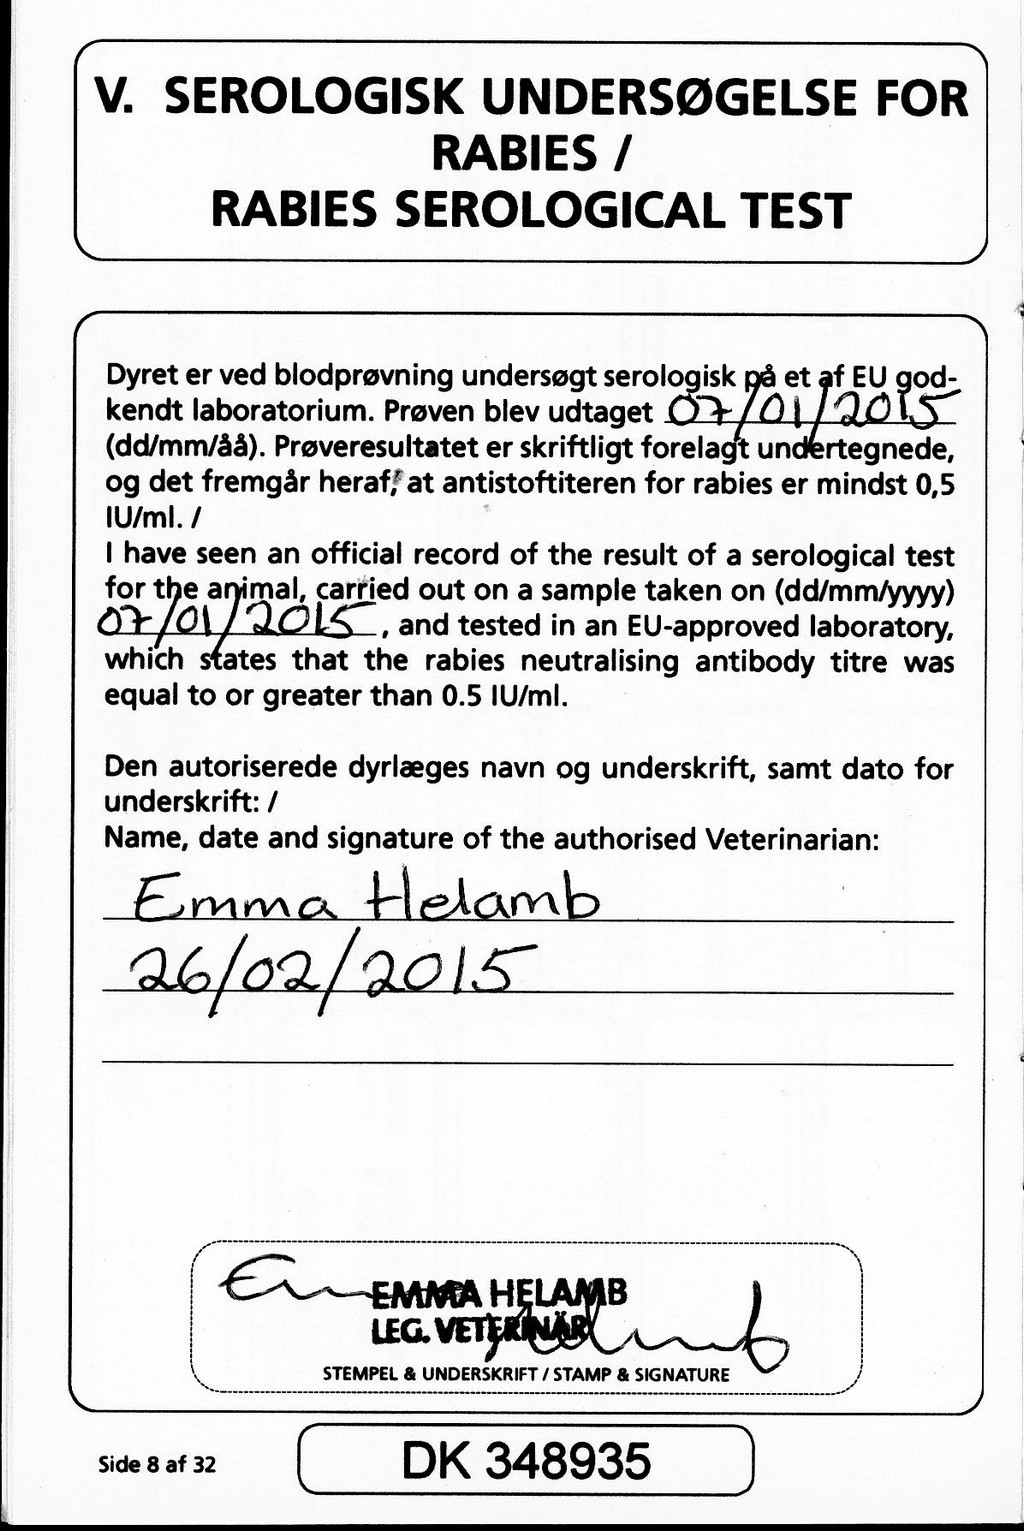 V. SEROLOGISK UNDERSØGELSE FOR
RABIES /
RABIES SEROLOGICAL TEST
Dyret er ved blodprøvning undersøgt serologisk på et af EU god-
kendt laboratorium. Prøven blev udtaget 07/01/2015
(dd/mm/åå). Prøveresultatet er skriftligt forelagt undertegnede,
og det fremgår heraf, at antistoftiteren for rabies er mindst 0,5
IU/ml. /
I have seen an official record of the result of a serological test
for the animal, carried out on a sample taken on (dd/mm/yyyy)
07/01/2015, and tested in an EU-approved laboratory,
which states that the rabies neutralising antibody titre was
equal to or greater than 0.5 IU/ml.
Den autoriserede dyrlæges navn og underskrift, samt dato for
underskrift: /
Name, date and signature of the authorised Veterinarian:
Emma Helamb
26/02/2015
EMMA HELAMB
LEG. VETERINÄR
STEMPEL & UNDERSKRIFT / STAMP & SIGNATURE
Side 8 af 32
DK 348935